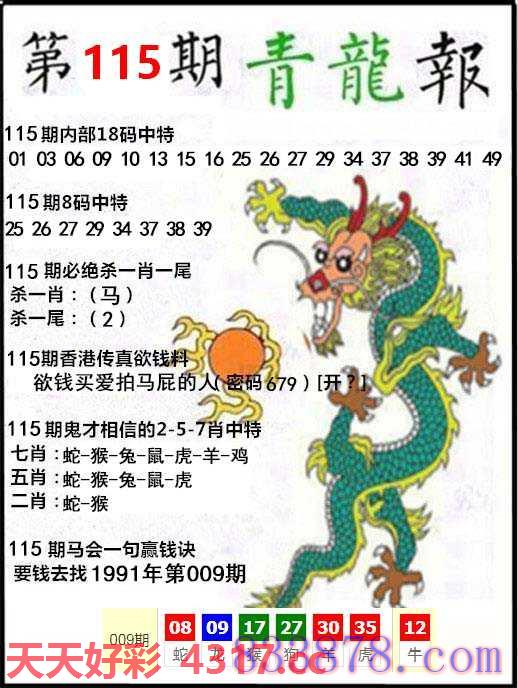 第115期青龍報
115期内部18码中特
01 03 06 09 10 13 15 16 25 26 27 29 34 37 38 39 41 49
115期8码中特
25 26 27 29 34 37 38 39
115期必绝杀一肖一尾
杀一肖：（马）
杀一尾：（2）
115期香港传真欲钱料
欲钱买爱拍马屁的人(密码679)[开？]
115期鬼才相信的2-5-7肖中特
七肖：蛇-猴-兔-鼠-虎-羊-鸡
五肖：蛇-猴-兔-鼠-虎
二肖：蛇-猴
115期马会一句赢钱诀
要钱去找1991年第009期
009期 08 09 17 27 30 35 12
蛇 龙 猴 狗 羊 虎 牛
天天好彩 4317.cc
833878.com